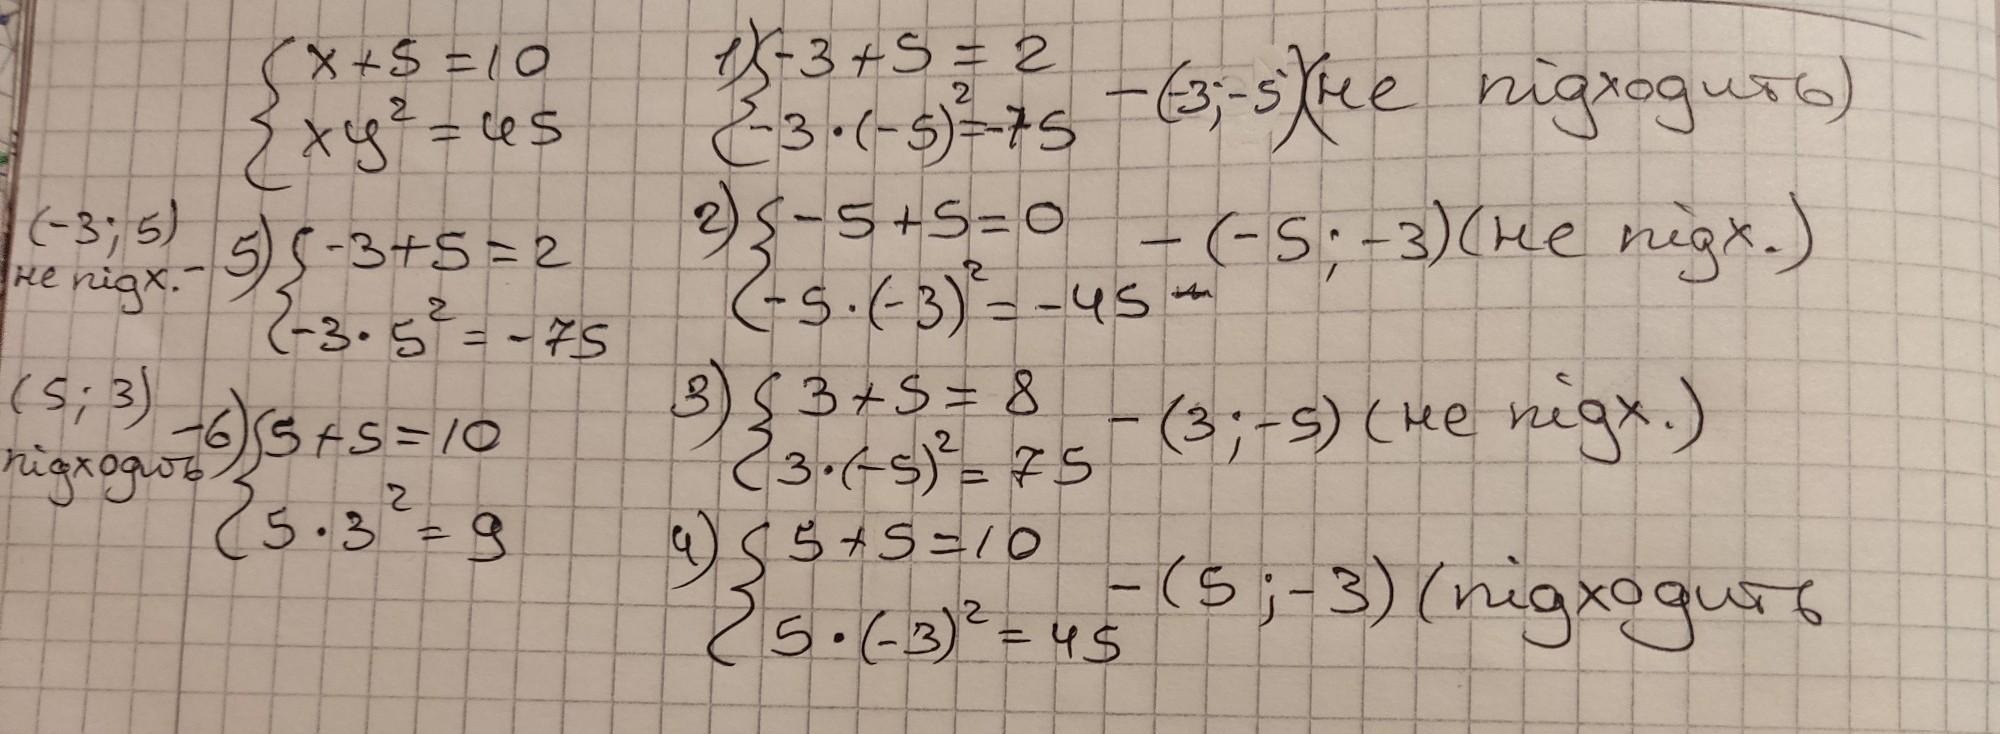 {x+5=10
{xy²=45
1) {-3+5=2
{-3·(-5)²=-75 - (-3;-5)(не підходить)
2) {-5+5=0
{-5·(-3)²=-45 - (-5;-3)(не підх.)
3) {3+5=8
{3·(-5)²=75 - (3;-5) (не підх.)
4) {5+5=10
{5·(-3)²=45 - (5;-3) (підходить
(-3;5)
не підх. - 5) {-3+5=2
{-3·5²=-75
(5;3)
підходить - 6) {5+5=10
{5·3²=9